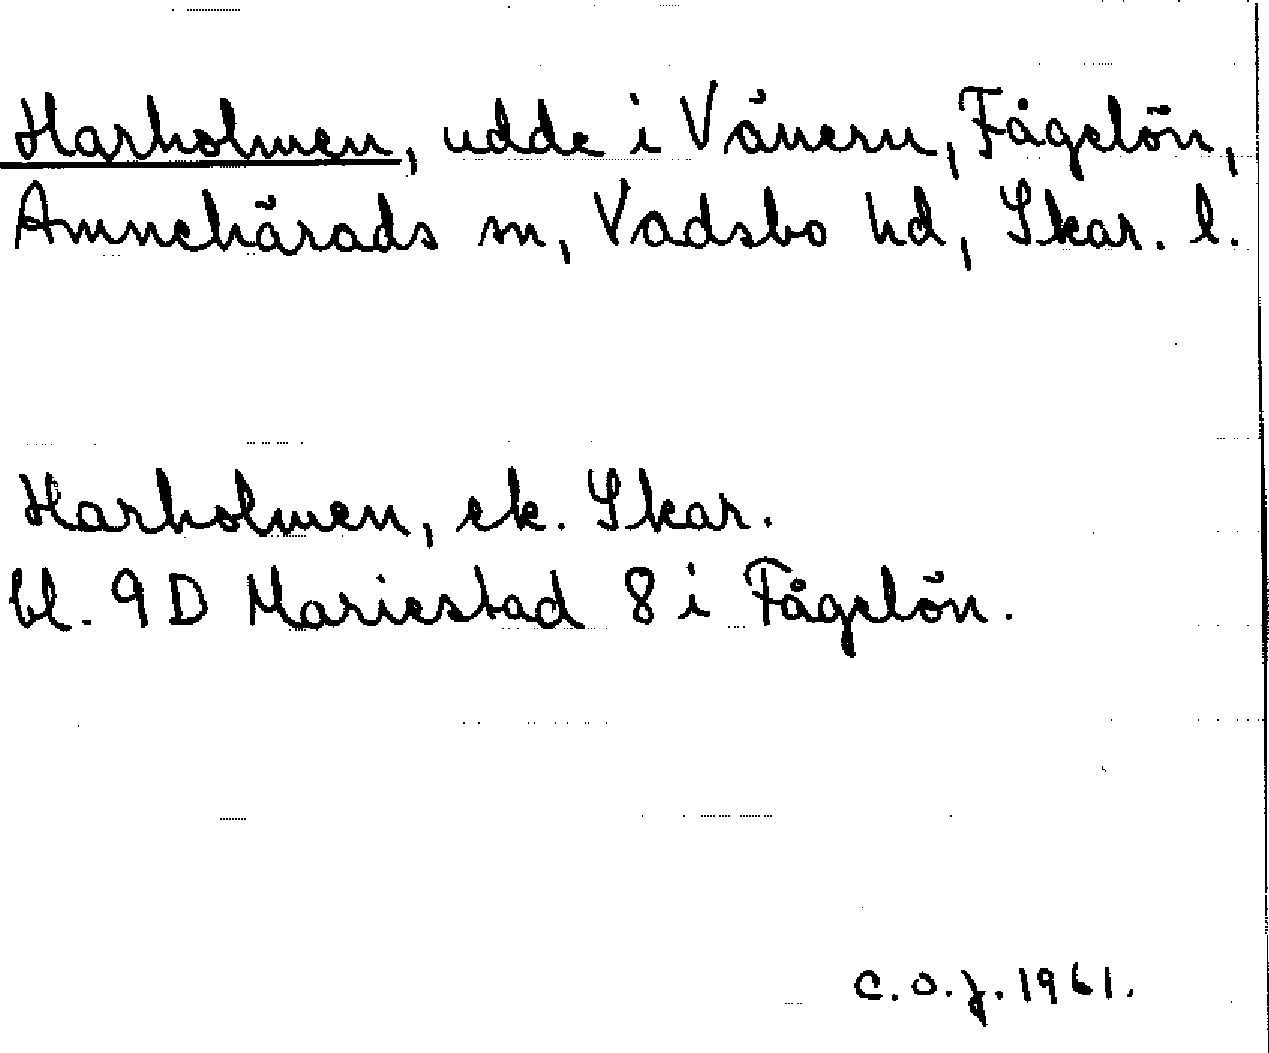 Harholmen, udde i Vänern, Fågelön,
Amnehärads sn, Vadsbo hd, Skar. l.
Harholmen, ek. Skar.
bl. 9D Mariestad 8 i Fågelön.
C.O.J. 1961.